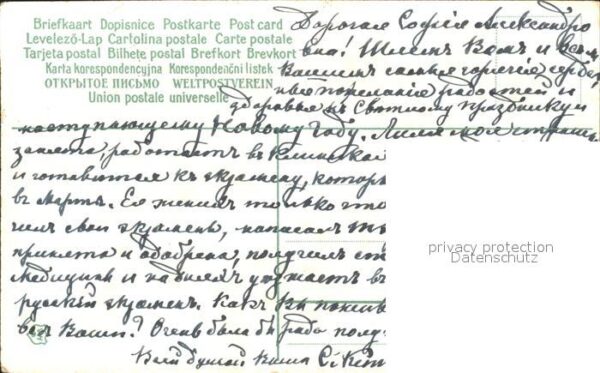 Briefkaart Dopisnice Postkarte Post card
Levelező-Lap Cartolina postale Carte postale
Tarjeta postal Bilhete postal Brefkort Brevkort
Karta korespondencyjna Korespondenční lístek
ОТКРЫТОЕ ПИСЬМО WELTPOSTVEREIN
Union postale universelle
Дорогая Софія Александро
вна! Шлемъ Вамъ и Всѣмъ
Вашимъ самыя горячія сердеч
ныя пожеланія радостей и
здоровья къ Свѣтлому празднику и
наступающему Новому Году. Лиля моя страшно
занята, работаетъ въ клиникахъ
и готовится къ экзамену, котор
въ Мартѣ. Ея женихъ только что
свой экзаменъ, написалъ
принята и одобрена, получилъ
Медицины и на дняхъ уѣзжаетъ въ
русскій экзаменъ. Какъ Вы пожив
всѣ Ваши? Очень была бы рада полу
Всей душой Ваша
privacy protection
Datenschutz